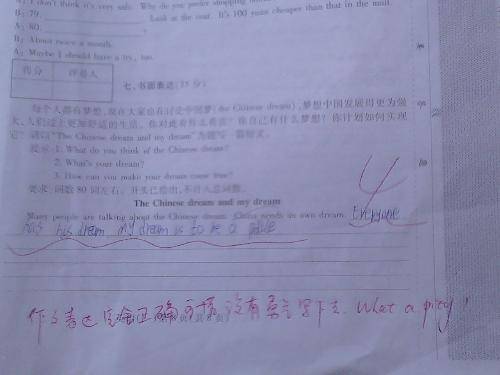 A: I don't think it's very safe. Why do you prefer shopping
B: 79. Look at the coat. It's 100 yuan cheaper than that in the mall.
A: 80.
B: About twice a month.
A: Maybe I should have a try, too.
得分 评卷人
七、书面表达(15分)
每个人都有梦想,现在大家也在讨论中国梦(the Chinese dream),梦想中国发展得更为强
大、人们过上更加舒适的生活。你对此有什么看法?你自己有什么梦想?你计划如何实现
它?请以"The Chinese dream and my dream"为题写一篇短文。
提示:1. What do you think of the Chinese dream?
2. What's your dream?
3. How can you make your dream come true?
要求:词数80词左右。开头已给出,不计入总词数。
The Chinese dream and my dream
Many people are talking about the Chinese dream. China needs its own dream. Everyone
has his dream. my dream is to be a
4
作文表达 正确 没有勇气写下去. What a pity!